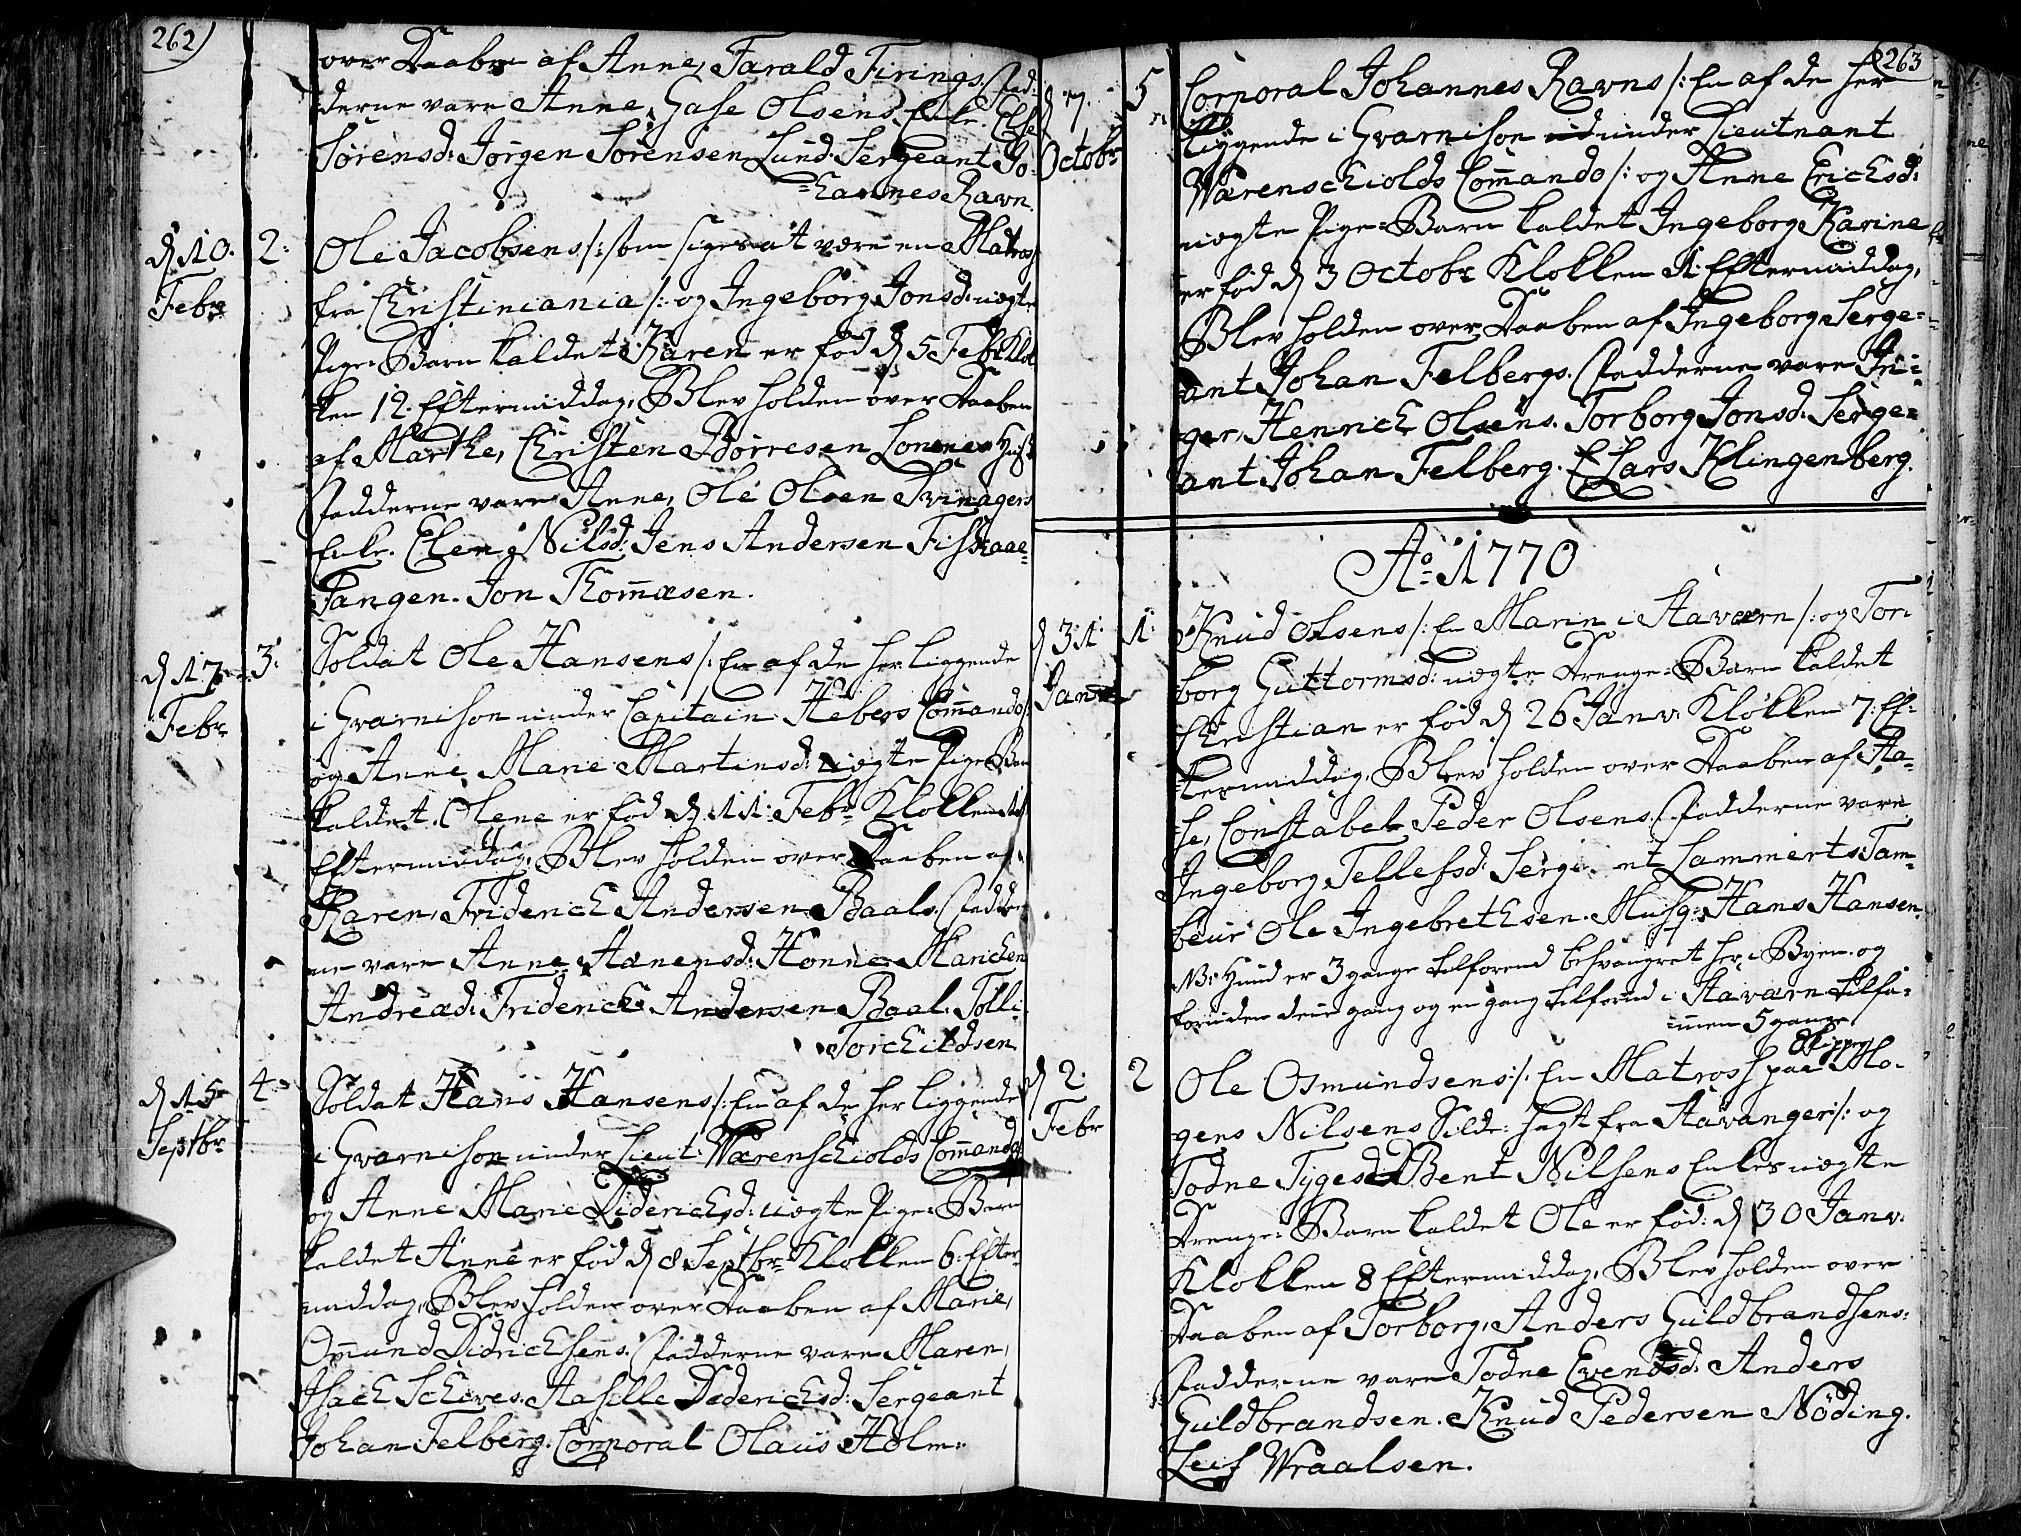 262)
over Daaben af Anne, Tarald Firings. Fad-
derne vare Anne, Gase Olsens Enke. Else
Sørensd: Jørgen Sørensen Lund. Sergeant Jo-
=hannes Ravn.
d 10. Febr 2: Ole Jacobsens /: som siges at være en Matros
fra Christiniania /: og Ingeborg Jonsd: uægte
Pige-Barn kaldet Karen er fød d 5 Febr Klok
ken 12. Eftermiddag, Blev holden over Daaben
af Marthe, Christen Børresen Lonens Hust:
Fadderne vare Anne, Ole Olsen Tvinagers
Enke. Elen Nilsd: Jens Andersen Fiskaae-
Tangen. Jon Thom̄æsen.
d 17 Febr 3: Soldat Ole Hansens /: En af de her liggende
i Gvarnison under Capitain Hebers Com̄ando /:
og Anne Marie Martinsd: uægte Pige-Barn
kaldet Olene er fød d 11: Febr Klokken
Eftermiddag, Blev holden over Daaben af
Karen, Friderich Andersen Baals. Fadder-
ne vare Anne Hanensd: Honne. Marichen
Andread: Friderich Andersen Baal. Tolli
Torchildsen.
d 15 Septbr 4: Soldat Hans Hansens /: En af de her liggende
i Gvarnison under Lieut: Wærenschiolds Com̄ando
og Anne Marie Diderichsd: uægte Pige-Barn
kaldet Anne er fød d 8 Septbr Klokken 6. Efter-
middag, Blev holden over Daaben af Marie,
Om̄und Didrichsens. Fadderne vare Maren,
Isach Schives. Aasille Dederichsd: Sergeant
Johan Felberg. Corporal Olaus Holm.
263
d 7. Octobr 5 Corporal Johannes Ravns /: En af de her
liggende i Gvarnison under Lieutnant
Wærenschiolds Com̄ando /: og Anne Erichsd:
uægte Pige-Barn kaldet Ingeborg Karine
er fød d 3 Octobr Klokken 1: Eftermiddag,
Blev holden over Daaben af Ingeborg, Serge-
ant Johan Felbergs. Fadderne vare In-
ger, Henrich Olsens. Torborg Jonsd: Serge-
ant Johan Felberg. Lars Klingenberg.
Ao 1770
d 31: Janv: 1: Knud Olsens /: En Marin i Staværn /: og Tor-
borg Guttormsd: uægte Drenge-Barn kaldet
Christian er fød d 26 Janv: Klokken 7. Ef-
termiddag, Blev holden over Daaben af Aa-
se, Constabel Peder Olsens. Fadderne vare
Ingeborg Tellefsd: Sergeant Lammerts: Tam-
beur Ole Ingebrethsen. Musq: Hans Hansen.
NB: Hund er 3 gange tilforend besvangret her i Byen. og
foruden denne gang og en gang tilforend i Staværn tilsa-
men 5 gange
d 2. Febr 2 Ole Osmundsens /: En Matros paa Skipper Mo-
gens Nilsens Silde-Jagt fra Stavanger /: og
Todne Tygesd Bent Nilsens Enkes uægte
Drenge-Barn kaldet Ole er fød: d 30 Janv:
Klokken 8 Eftermiddag, Blev holden over
Daaben af Torborg, Anders Guldbrandsens:
Fadderne vare Todne Evendsd: Anders
Guldbrandsen. Knud Pedersen Nöding.
Leif Wraalsen.